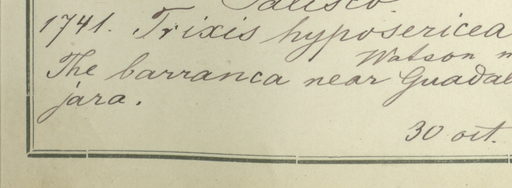 Jalisco.
1741. Trixis hyposericea
Watson n
The barranca near Guadal
jara.
30 oct.